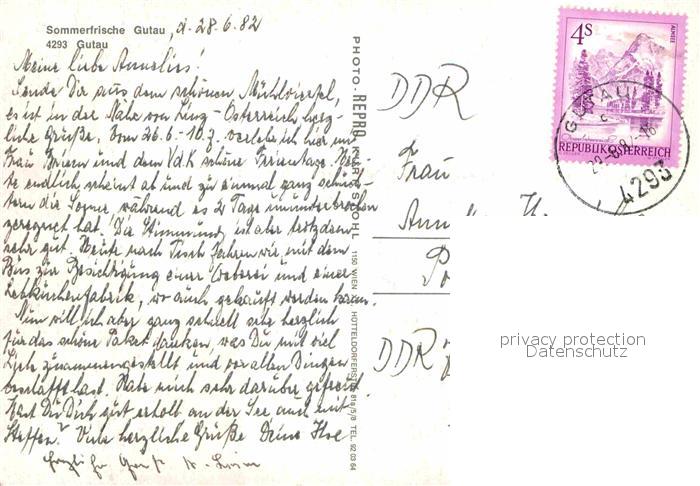 Sommerfrische Gutau, d. 28.6.82
4293 Gutau
Meine liebe Annelies!
Sende Dir aus dem schönen Mühlviertel,
es ist in der Nähe von Linz-Österreich herz-
liche Grüße. Vom 26.6.-10.7. verlebe ich hier mit
Frau und dem VdK schöne Ferientage. Heu-
te endlich scheint ab und zu einmal ganz schüch-
tern die Sonne, während es 2 Tage ununterbrochen
geregnet hat. Die Stimmung ist aber trotzdem
sehr gut. Heute nach Tisch fahren wir mit dem
Bus zur Besichtigung einer Weberei und einer
Lebkuchenfabrik, wo auch gekauft werden kann.
Nun will ich aber ganz schnell sehr herzlich
für das schöne Paket danken, was Du mit viel
Liebe zusammengestellt und vor allen Dingen
beschafft hast. Habe mich sehr darüber gefreut.
Hast Du Dich gut erholt an der See auch mit
Steffen? Viele herzliche Grüße Deine Ilse
PHOTO-REPRO KURT STOHL 1150 WIEN HÜTTELDORFERSTR. 81a/5/8 TEL. 92 03 64
DDR
Frau
DDR
4S
ALMSEE
REPUBLIK ÖSTERREICH
GUTAU
4293
privacy protection
Datenschutz